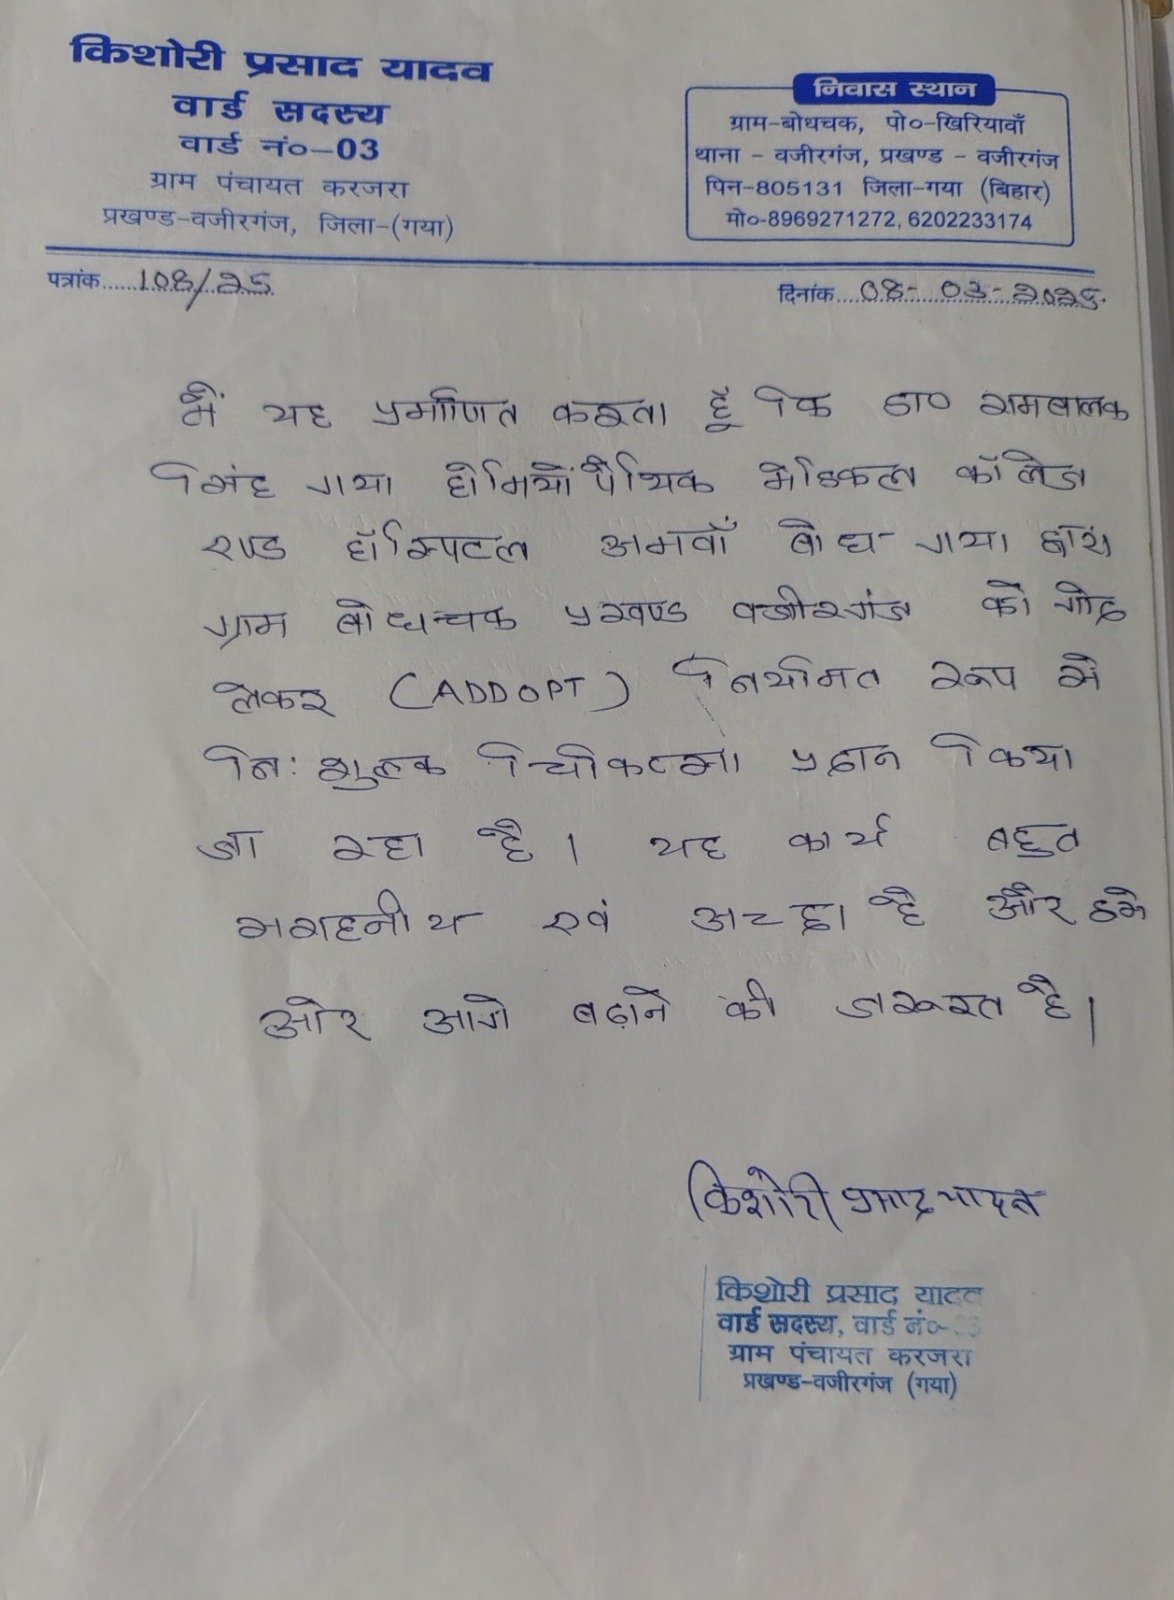 किशोरी प्रसाद यादव
वार्ड सदस्य
वार्ड नं०-03
ग्राम पंचायत करजरा
प्रखण्ड-वजीरगंज, जिला-(गया)
निवास स्थान
ग्राम-बोधचक, पो०-खिरियावाँ
थाना - वजीरगंज, प्रखण्ड - वजीरगंज
पिन-805131 जिला-गया (बिहार)
मो०-8969271272, 6202233174
पत्रांक......108/25
दिनांक....08-03-2025.
में यह प्रमाणित करता हूँ कि डा० रामबालक
सिंह गया होमियोंपैथिक मेडिकल कॉलेज
एण्ड हॉस्पिटल अमवाँ बोध गया द्वारा
ग्राम बोधचक प्रखण्ड वजीरगंज को गोद
लेकर (ADDOPT) नियमित रूप से
नि:शुल्क चिकित्सा प्रदान किया
जा रहा है। यह कार्य बहुत
सराहनीय एवं अच्छा है और इसे
ओर आगे बढ़ाने की जरूरत है।
किशोरी प्रसाद यादव
किशोरी प्रसाद यादव
वार्ड सदस्य, वार्ड नं०-03
ग्राम पंचायत करजरा
प्रखण्ड-वजीरगंज (गया)